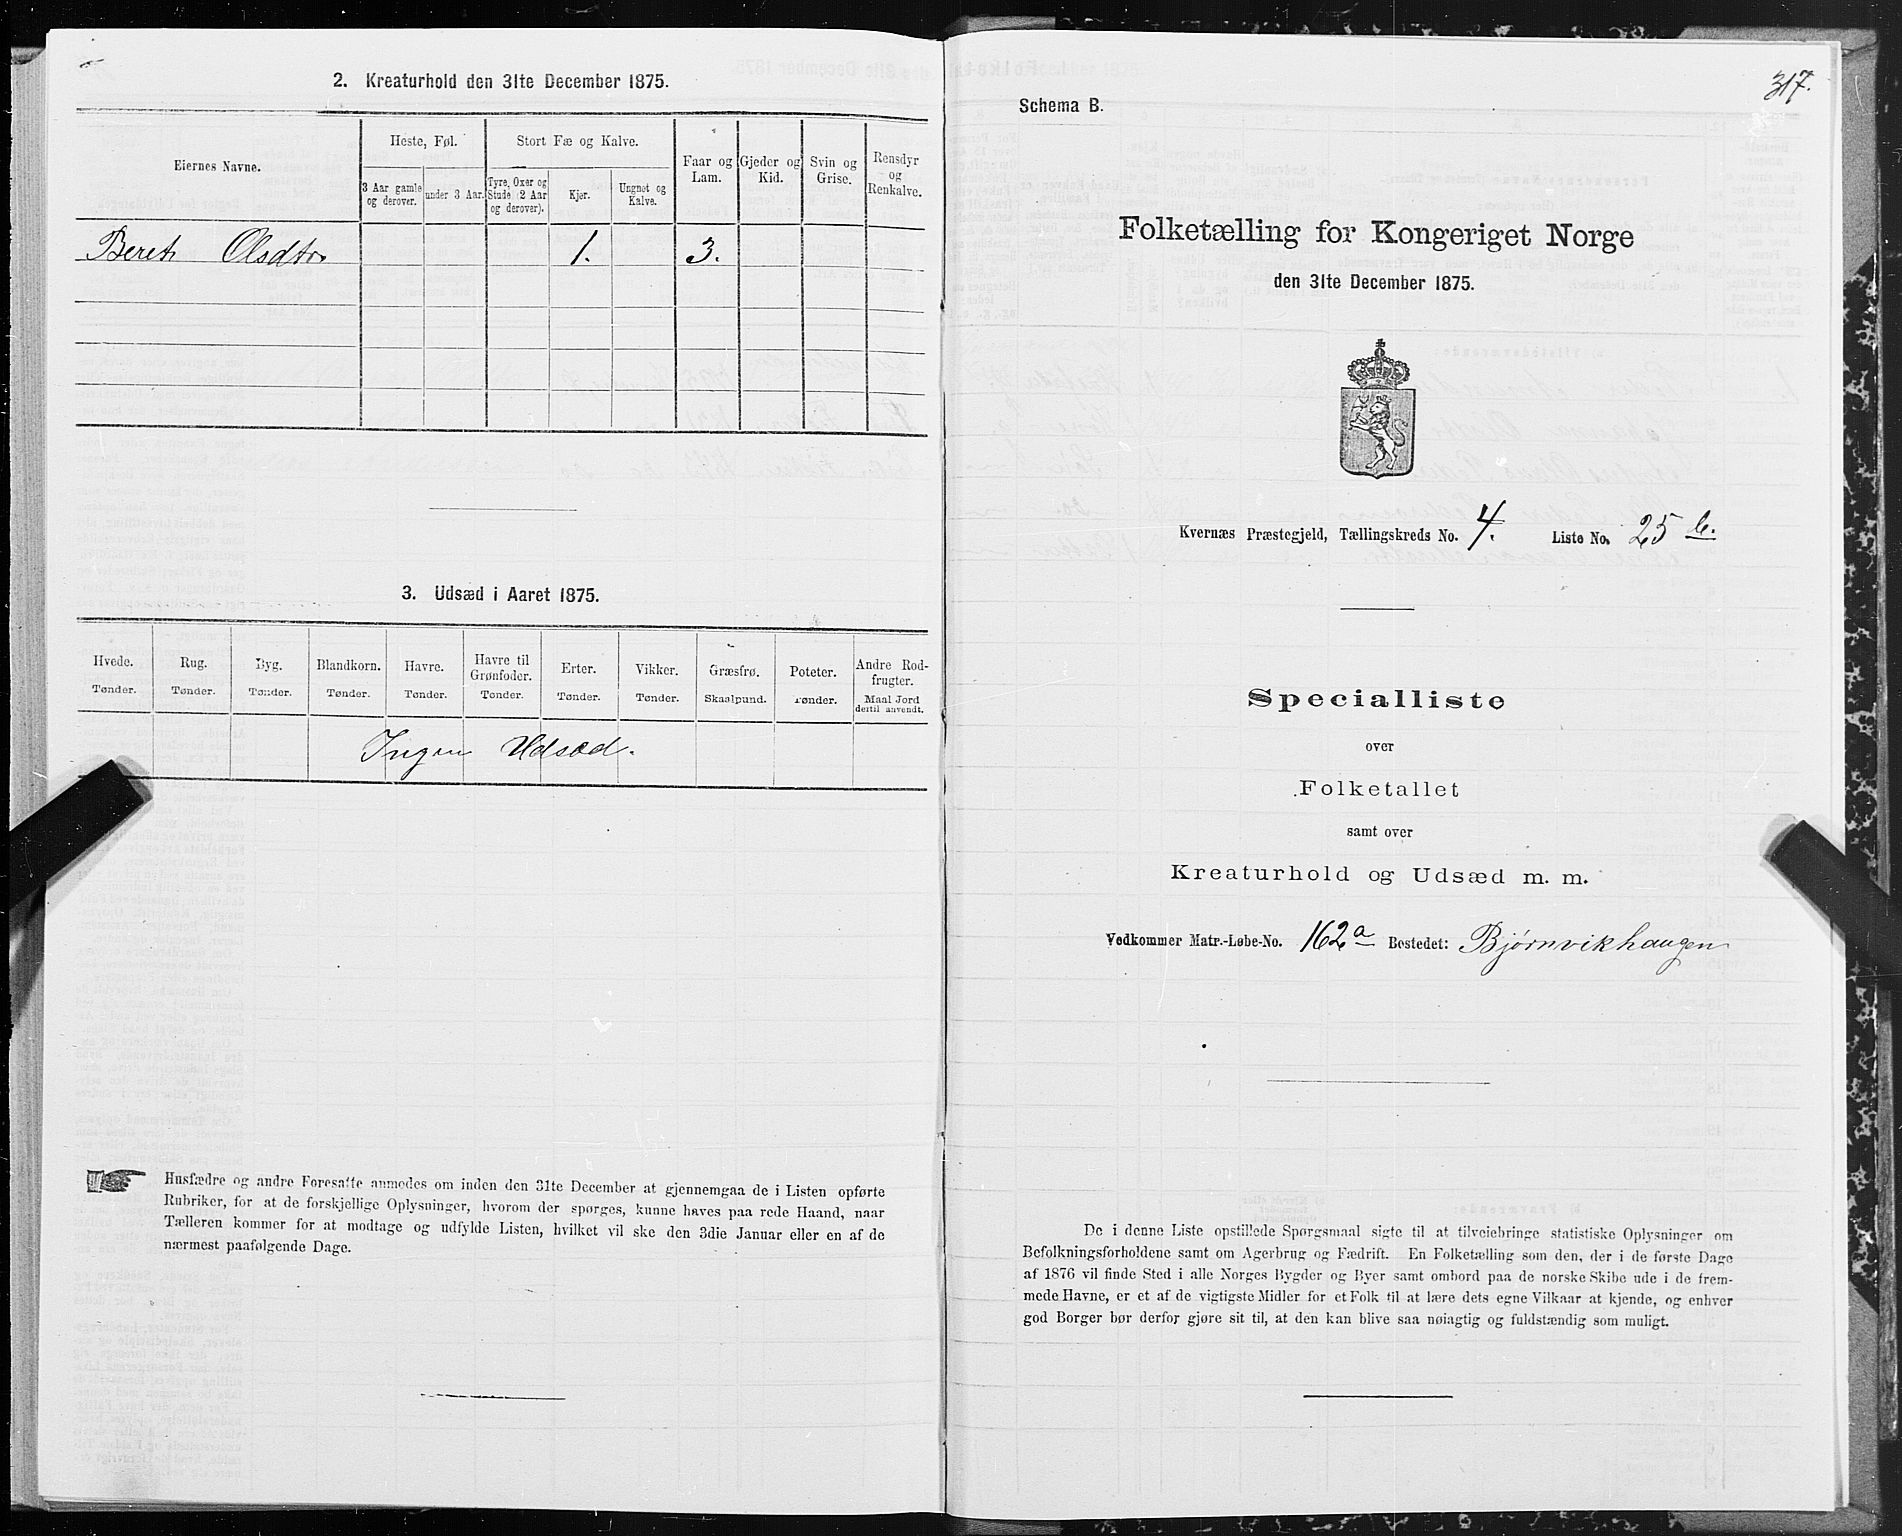 2. Kreaturhold den 31te December 1875.
Eiernes Navne.
Heste, Føl.
Stort Fæ og Kalve.
Faar og
Lam.
Gjeder og
Kid.
Svin og
Grise.
Rensdyr
og
Renkalve.
3 Aar gamle
og derover.
under 3 Aar.
Tyre, Oxer og
Stude (2 Aar
og derover).
Kjør.
Ungnøt og
Kalve.
Beret Olsdtr
1.
3.
3. Udsæd i Aaret 1875.
Hvede.
Tønder.
Rug.
Tønder.
Byg.
Tønder.
Blandkorn.
Tønder.
Havre.
Tønder.
Havre til
Grønfoder.
Tønder.
Erter.
Tønder.
Vikker.
Tønder.
Græsfrø.
Skaalpund.
Poteter.
Tønder.
Andre Rod-
frugter.
Maal Jord
dertil anvendt.
Ingen Udsæd.
Husfædre og andre Foresatte anmodes om inden den 31te December at gjennemgaa de i Listen opførte
Rubriker, for at de forskjellige Oplysninger, hvorom der spørges, kunne haves paa rede Haand, naar
Tælleren kommer for at modtage og udfylde Listen, hvilket vil ske den 3die Januar eller en af de
nærmest paafølgende Dage.
317.
Schema B.
Folketælling for Kongeriget Norge
den 31te December 1875.
Kvernæs Præstegjeld, Tællingskreds No. 4. Liste No. 25 b.
Specialliste
over
Folketallet
samt over
Kreaturhold og Udsæd m. m.
Vedkommer Matr.-Løbe-No. 162a Bostedet: Bjørnvikhaugen
De i denne Liste opstillede Spørgsmaal sigte til at tilveiebringe statistiske Oplysninger om
Befolkningsforholdene samt om Agerbrug og Fædrift. En Folketælling som den, der i de første Dage
af 1876 vil finde Sted i alle Norges Bygder og Byer samt ombord paa de norske Skibe ude i de frem-
mede Havne, er et af de vigtigste Midler for et Folk til at lære dets egne Vilkaar at kjende, og enhver
god Borger bør derfor gjøre sit til, at den kan blive saa nøiagtig og fuldstændig som muligt.